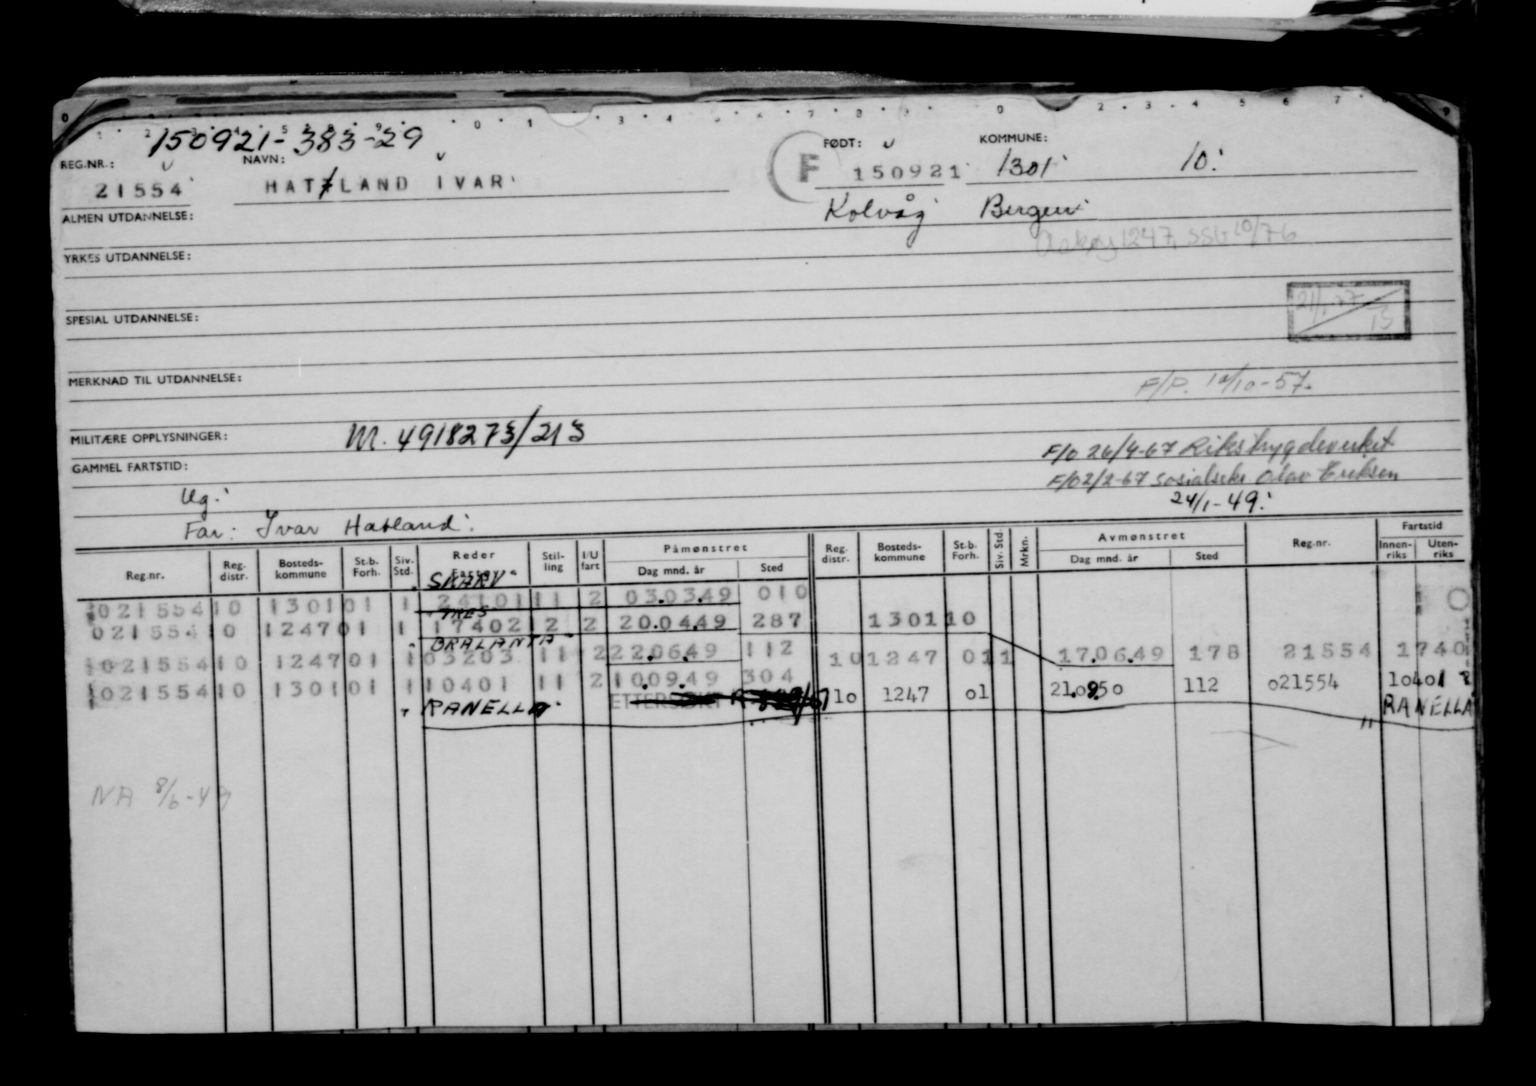 150921-383-29
REG.NR.: NAVN: FØDT: KOMMUNE:
21554 HATLAND IVAR F 150921 1301 10.
ALMEN UTDANNELSE: Kolvåg Bergen
Askøy 1247, SSB 10/76
YRKES UTDANNELSE:
SPESIAL UTDANNELSE:
MERKNAD TIL UTDANNELSE:
F/P. 10/10-57.
MILITÆRE OPPLYSNINGER: M. 4918273/213
F/O 26/4-67 Rikstrygdeverket
GAMMEL FARTSTID:
F/O 2/2-67 sosialsekr Olav Eriksen
Ug. 24/1-49.
Far: Ivar Hatland.
Reg.nr. Reg. distr. Bosteds-kommune St.b. Forh. Siv. Std. Reder Fartøy Stil-ling I/U fart Påmønstret Dag mnd. år Sted Reg. distr. Bosteds-kommune St.b. Forh. Siv. Std. Mrkn. Avmønstret Dag mnd. år Sted Reg.nr. Fartstid Innen-riks Uten-riks
SKARV
021554 10 1301 01 1 24101 11 2 03.03.49 010 0
TRES
021554 10 1247 01 1 17402 12 2 20.04.49 287 1301 10
BRALANTA
021554 10 1247 01 1 03203 11 2 22.06.49 112 10 1247 01 1 17.06.49 178 21554 1740
021554 10 1301 01 1 10401 11 2 10.09.49 304
10 1247 01 21.09.50 112 021554 10401
RANELLA ETTERSØKT RANELLA
NA 8/6-49